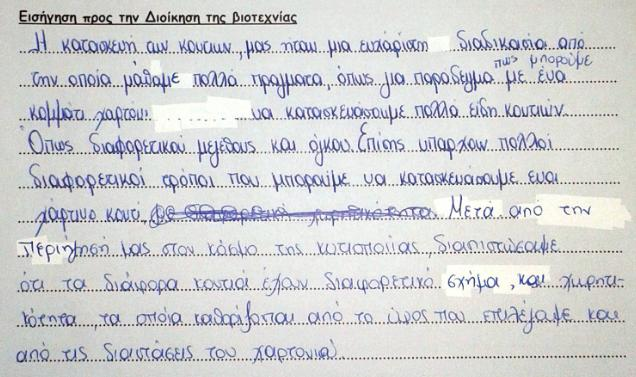 Εισήγηση προς την Διοίκηση της βιοτεχνίας
Η κατασκευή των κουτιών, μας ήταν μια ευχάριστη διαδικασία από
την οποία μάθαμε πολλά πράγματα, όπως για παράδειγμα πως μπορούμε με ένα
κομμάτι χαρτόνι να κατασκευάσουμε πολλά είδη κουτιών.
Όπως διαφορετικού μεγέθους και όγκου. Επίσης υπάρχουν πολλοί
διαφορετικοί τρόποι που μπορούμε να κατασκευάσουμε ένα
χάρτινο κουτί Μετά από την
περιήγησή μας στον κόσμο της κυτιοποιίας, διαπιστώσαμε
ότι τα διάφορα κουτιά έχουν διαφορετικό σχήμα, και χωρητι-
κότητα, τα οποία καθορίζονται από το ύψος που επιλέγαμε και
από τις διαστάσεις του χαρτονιού